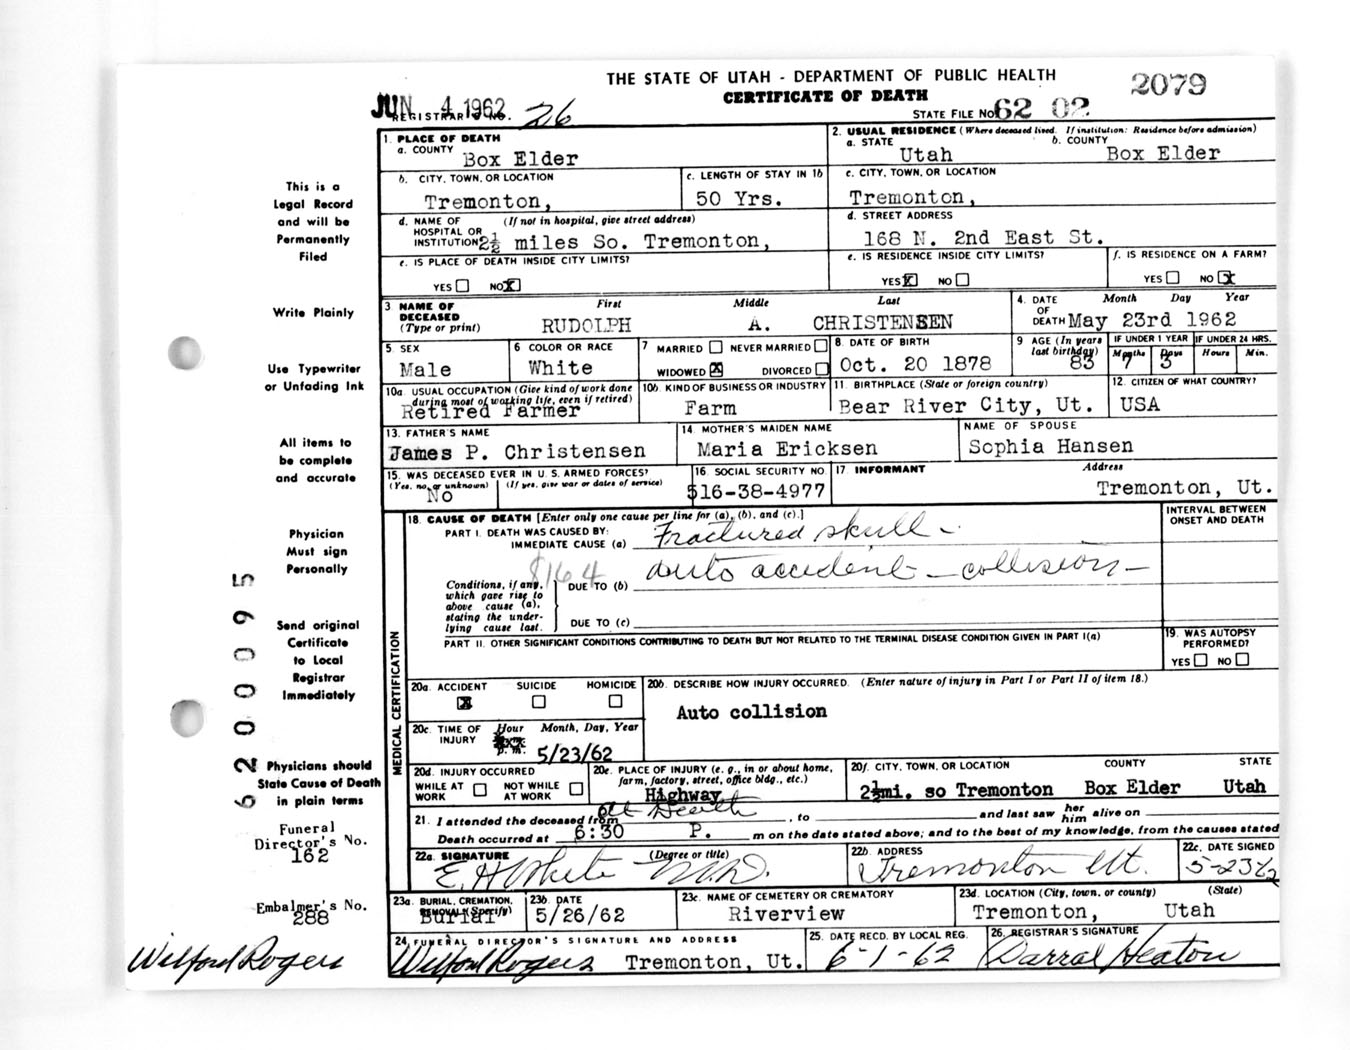 THE STATE OF UTAH - DEPARTMENT OF PUBLIC HEALTH
CERTIFICATE OF DEATH
2079
JUN 4 1962
REGISTRAR'S NO. 26
STATE FILE NO. 62 02
This is a
Legal Record
and will be
Permanently
Filed
Write Plainly
Use Typewriter
or Unfading Ink
All items to
be complete
and accurate
Physician
Must sign
Personally
Send original
Certificate
to Local
Registrar
Immediately
Physicians should
State Cause of Death
in plain terms
Funeral
Director's No.
162
Embalmer's No.
288
Wilford Rogers
62 00095
1. PLACE OF DEATH
a. COUNTY
Box Elder
2. USUAL RESIDENCE (Where deceased lived. If institution: Residence before admission)
a. STATE b. COUNTY
Utah Box Elder
b. CITY, TOWN, OR LOCATION
Tremonton,
c. LENGTH OF STAY IN 1b
50 Yrs.
c. CITY, TOWN, OR LOCATION
Tremonton,
d. NAME OF (If not in hospital, give street address)
HOSPITAL OR
INSTITUTION 2½ miles So. Tremonton,
d. STREET ADDRESS
168 N. 2nd East St.
e. IS PLACE OF DEATH INSIDE CITY LIMITS?
YES NO X
e. IS RESIDENCE INSIDE CITY LIMITS?
YES X NO
f. IS RESIDENCE ON A FARM?
YES NO X
3 NAME OF DECEASED (Type or print)
First Middle Last
RUDOLPH A. CHRISTENSEN
4. DATE OF DEATH
Month Day Year
May 23rd 1962
5 SEX
Male
6 COLOR OR RACE
White
7 MARRIED NEVER MARRIED
WIDOWED X DIVORCED
8. DATE OF BIRTH
Oct. 20 1878
9 AGE (In years last birthday)
83
IF UNDER 1 YEAR IF UNDER 24 HRS.
Months Days Hours Min.
7 3
10a USUAL OCCUPATION (Give kind of work done during most of working life, even if retired)
Retired Farmer
10b KIND OF BUSINESS OR INDUSTRY
Farm
11. BIRTHPLACE (State or foreign country)
Bear River City, Ut.
12. CITIZEN OF WHAT COUNTRY?
USA
13. FATHER'S NAME
James P. Christensen
14. MOTHER'S MAIDEN NAME
Maria Ericksen
NAME OF SPOUSE
Sophia Hansen
15. WAS DECEASED EVER IN U. S. ARMED FORCES?
(Yes, no, or unknown) (If yes, give war or dates of service)
No
16. SOCIAL SECURITY NO.
516-38-4977
17 INFORMANT Address
Tremonton, Ut.
MEDICAL CERTIFICATION
18. CAUSE OF DEATH [Enter only one cause per line for (a), (b), and (c).]
INTERVAL BETWEEN
ONSET AND DEATH
PART I. DEATH WAS CAUSED BY:
IMMEDIATE CAUSE (a) Fractured skull -
Conditions, if any,
which gave rise to
above cause (a),
stating the under-
lying cause last.
DUE TO (b) auto accident - collision -
DUE TO (c)
PART II. OTHER SIGNIFICANT CONDITIONS CONTRIBUTING TO DEATH BUT NOT RELATED TO THE TERMINAL DISEASE CONDITION GIVEN IN PART I(a)
19. WAS AUTOPSY
PERFORMED?
YES NO
20a. ACCIDENT SUICIDE HOMICIDE
X
20b. DESCRIBE HOW INJURY OCCURRED. (Enter nature of injury in Part I or Part II of item 18.)
Auto collision
20c. TIME OF INJURY
Hour Month, Day, Year
p. m. 5/23/62
20d. INJURY OCCURRED
WHILE AT WORK NOT WHILE AT WORK
20e. PLACE OF INJURY (e. g., in or about home,
farm, factory, street, office bldg., etc.)
Highway
20f. CITY, TOWN, OR LOCATION COUNTY STATE
2½mi. so Tremonton Box Elder Utah
21. I attended the deceased from At Death, to and last saw her him alive on
Death occurred at 6:30 P. m on the date stated above; and to the best of my knowledge, from the causes stated
22a. SIGNATURE (Degree or title)
E H White M.D.
22b. ADDRESS
Tremonton Ut.
22c. DATE SIGNED
5-23-62
23a. BURIAL, CREMATION, REMOVAL (Specify)
Burial
23b. DATE
5/26/62
23c. NAME OF CEMETERY OR CREMATORY
Riverview
23d. LOCATION (City, town, or county) (State)
Tremonton, Utah
24 FUNERAL DIRECTOR'S SIGNATURE AND ADDRESS
Wilford Rogers Tremonton, Ut.
25. DATE RECD. BY LOCAL REG.
6-1-62
26. REGISTRAR'S SIGNATURE
Darral Heaton